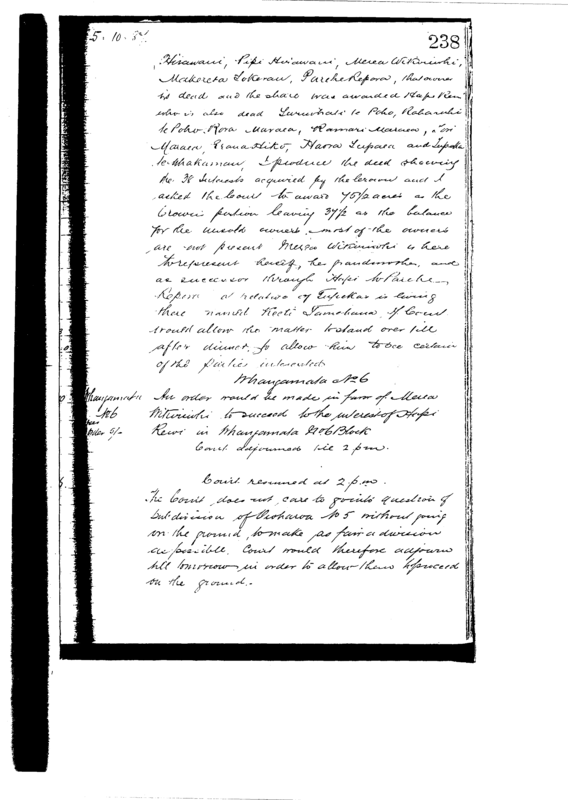 5-10-8
238
Hirawani, Pipi Hirawani, Merea Wikiriwhi,
Makereta Parehe Repora, that owner
is dead and the share was awarded Hapi Rewi
who is also dead te Poho, Raharuhi
te Poho, Rora Maraea, Ramari Maraea, Tori
Maraea, Hiko, Haora Tupaea and
te Whakamau, I produce the deed showing
the 38 Interests acquired by the Crown and I
asked the Court to award 75½ acres as the
Crown's portion leaving 37½ as the balance
for the unsold owners. most of the owners
are not present Merea Wikiriwhi is here
to represent herself, her grandmother, and
as successor through Hapi to Parehe
Repora a relative of is living
there named Tamehana, if Court
would allow the matter to stand over till
after dinner, to allow him to see certain
of the parties interested
Whangamata No 6
Whangamata An order would be made in favor of Merea
No 6 Wikiriwhi to succeed to the interest of Hapi
order 5/- Rewi in Whangamata No 6 Block
Court adjourned till 2 pm.
Court resumed at 2 p.m.
The Court does not care to go into question of
subdivision of No 5 without going
on the ground, to make as fair a division
as possible. Court would therefore adjourn
till tomorrow in order to allow them to proceed
on the ground.